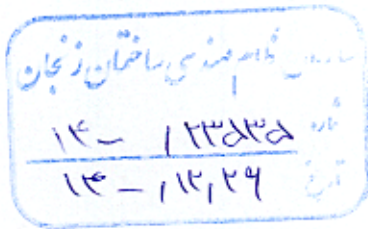 سازمان نظام مهندسی ساختمان زنجان
شماره ۱۴۰۰/۲۳۵۳۵
تاریخ ۱۴۰۰/۱۲/۲۶